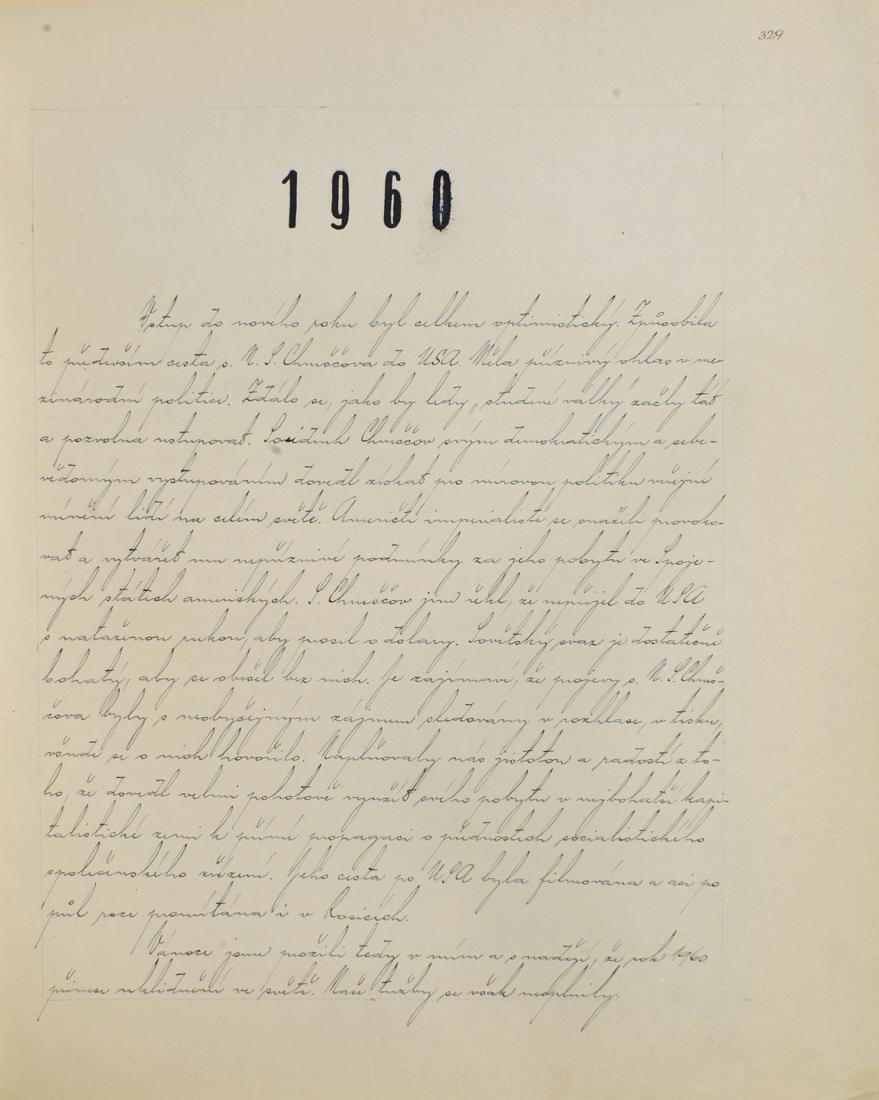 329
1960
Vstup do nového roku byl celkem optimistický. Způsobila
to především cesta s. N. S. Chruščova do USA. Měla příznivý ohlas v me-
zinárodní politice. Zdálo se, jako by ledy „studené války“ začly tát
a pozvolna ustupovat. Soudruh Chruščov svým demokratickým a sebe-
vědomým vystupováním dovedl získat pro mírovou politiku veřejné
mínění lidí na celém světě. Američtí imperialisté se snažili provoko-
vat a vytvářet mu nepříznivé podmínky za jeho pobytu ve Spoje-
ných státech amerických. S. Chruščov jim řekl, že nepřijel do USA
s nataženou rukou, aby prosil o dolary. Sovětský svaz je dostatečně
bohatý, aby se obešel bez nich. Je zajímavé, že projevy s. N. S. Chruš-
čova byly s neobyčejným zájmem sledovány v rozhlase, v tisku,
všude se o nich hovořilo. Naplňovaly nás jistotou a radostí z to-
ho, že dovedl velmi pohotově využít svého pobytu v nejbohatší kapi-
talistické zemi k přímé propagaci o přednostech socialistického
společenského zřízení. Jeho cesta po USA byla filmována a asi po
půl roce promítána i v Rosicích.
Vánoce jsme prožili tedy v míru a s nadějí, že rok 1960
přinese uklidnění ve světě. Naše tužby se však nesplnily.